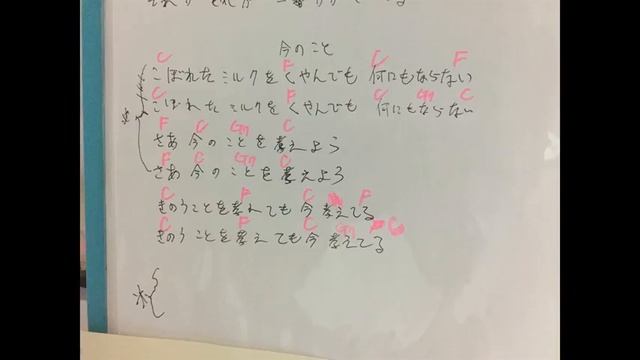 今のこと
C F C F
こぼれたミルクをくやんでも 何にもならない
C F C G7 C
こぼれたミルクをくやんでも 何にもならない
F C G7 C
さあ今のことを考えよう
F C G7 C
さあ今のことを考えよう
C F C F
きのうことを考れても今考えてる
C F C G7 C
きのうことを考えても今考えてる